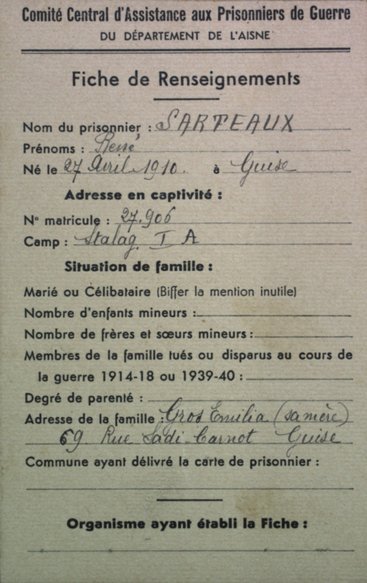 Comité Central d'Assistance aux Prisonniers de Guerre
DU DÉPARTEMENT DE L'AISNE
Fiche de Renseignements
Nom du prisonnier : SARTEAUX
Prénoms : René
Né le 27 Avril 1910. à Guise
Adresse en captivité :
N° matricule : 27.906
Camp : Stalag I A
Situation de famille :
Marié ou Célibataire (Biffer la mention inutile)
Nombre d'enfants mineurs :
Nombre de frères et sœurs mineurs :
Membres de la famille tués ou disparus au cours de
la guerre 1914-18 ou 1939-40 :
Degré de parenté :
Adresse de la famille : Gros Emilia (sa mère)
69 Rue Sadi Carnot Guise
Commune ayant délivré la carte de prisonnier :
Organisme ayant établi la Fiche :